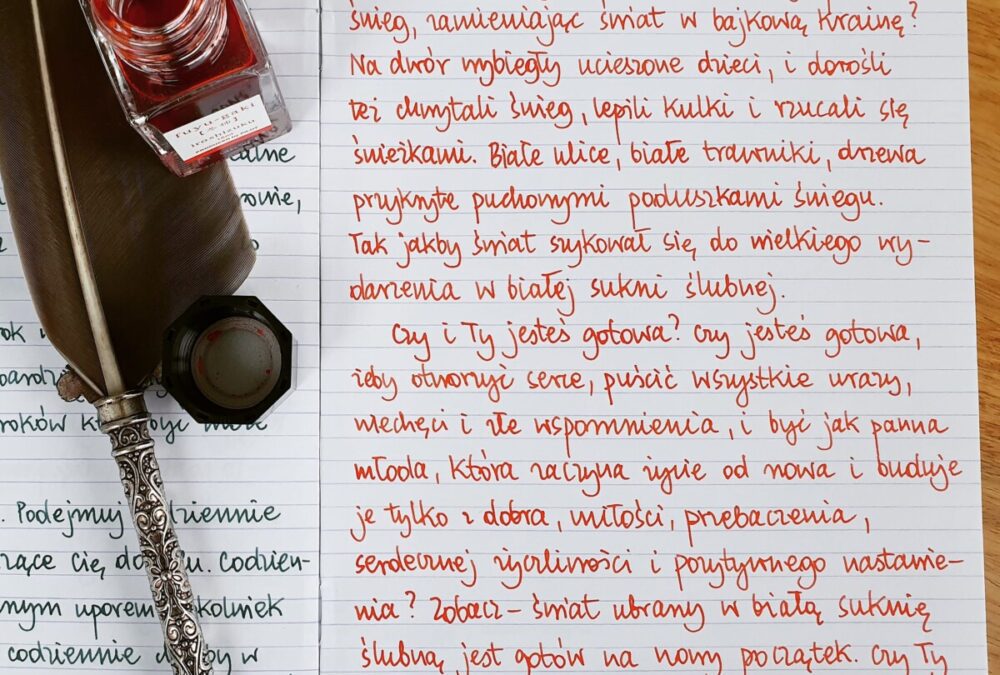 fuyu-gaki
iroshizuku
ealne
ownie,
rok
bardzi
roków któ
. Podejmuj dziennie
zące cię do u. Codzien-
nym uporem kolwiek
codziennie by w
śnieg, zamieniając świat w bajkową krainę?
Na dwór wybiegły ucieszone dzieci, i dorośli
też chwytali śnieg, lepili kulki i rzucali się
śnieżkami. Białe ulice, białe trawniki, drzewa
przykryte puchowymi poduszkami śniegu.
Tak jakby świat szykował się do wielkiego wy-
darzenia w białej sukni ślubnej.
Czy i Ty jesteś gotowa? Czy jesteś gotowa,
żeby otworzyć serce, puścić wszystkie urazy,
niechęci i złe wspomnienia, i być jak panna
młoda, która zaczyna życie od nowa i buduje
je tylko z dobra, miłości, przebaczenia,
serdecznej życzliwości i pozytywnego nastawie-
nia? Zobacz - świat ubrany w białą suknię
ślubną, jest gotów na nowy początek. Czy Ty